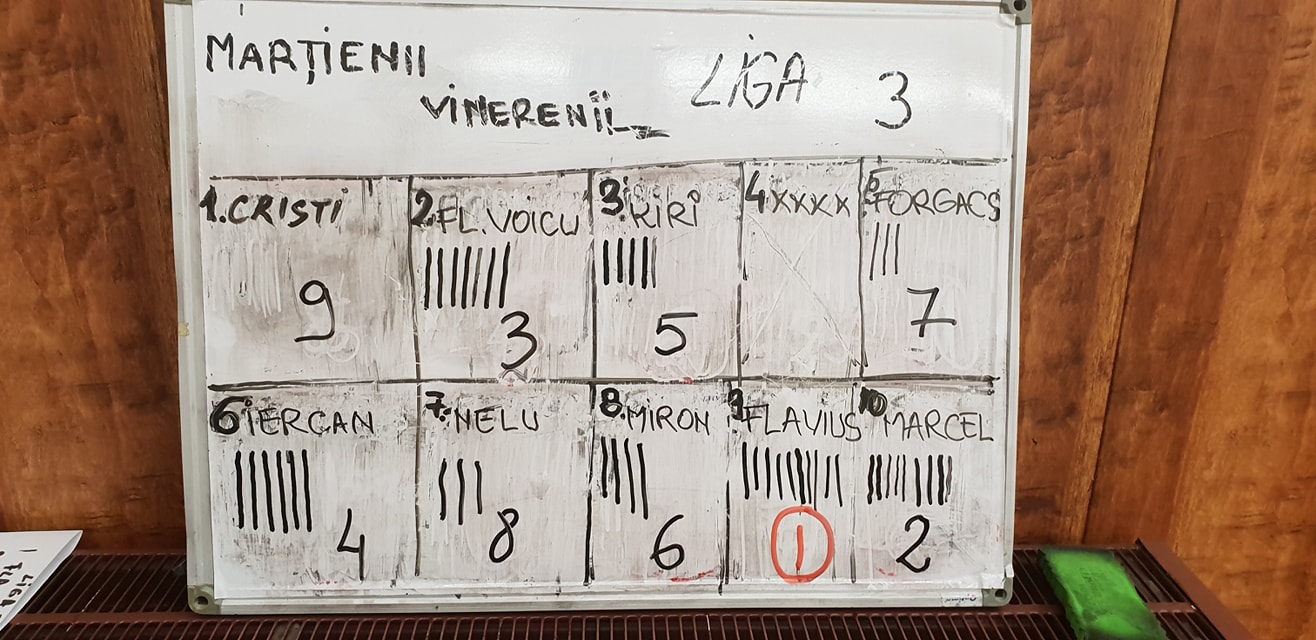 MARȚIENII
VINERENII
LIGA 3
1. CRISTI
9
2. FL. VOICU
3
3. KIRI
5
4 XXXX
5 FORGACS
7
6 IERCAN
4
7. NELU
8
8. MIRON
6
9 FLAVIUS
1
10 MARCEL
2